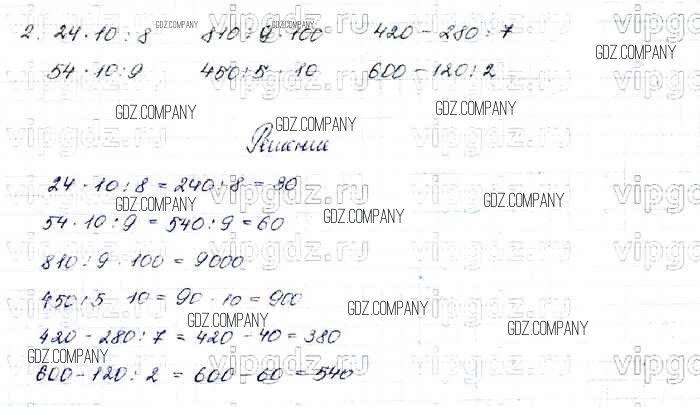 2. 24 · 10 : 8 810 : 9 · 100 420 - 280 : 7
54 · 10 : 9 450 : 5 · 10 600 - 120 : 2
Решение
24 · 10 : 8 = 240 : 8 = 30
54 · 10 : 9 = 540 : 9 = 60
810 : 9 · 100 = 9000
450 : 5 10 = 90 · 10 = 900
420 - 280 : 7 = 420 - 40 = 380
600 - 120 : 2 = 600 - 60 = 540